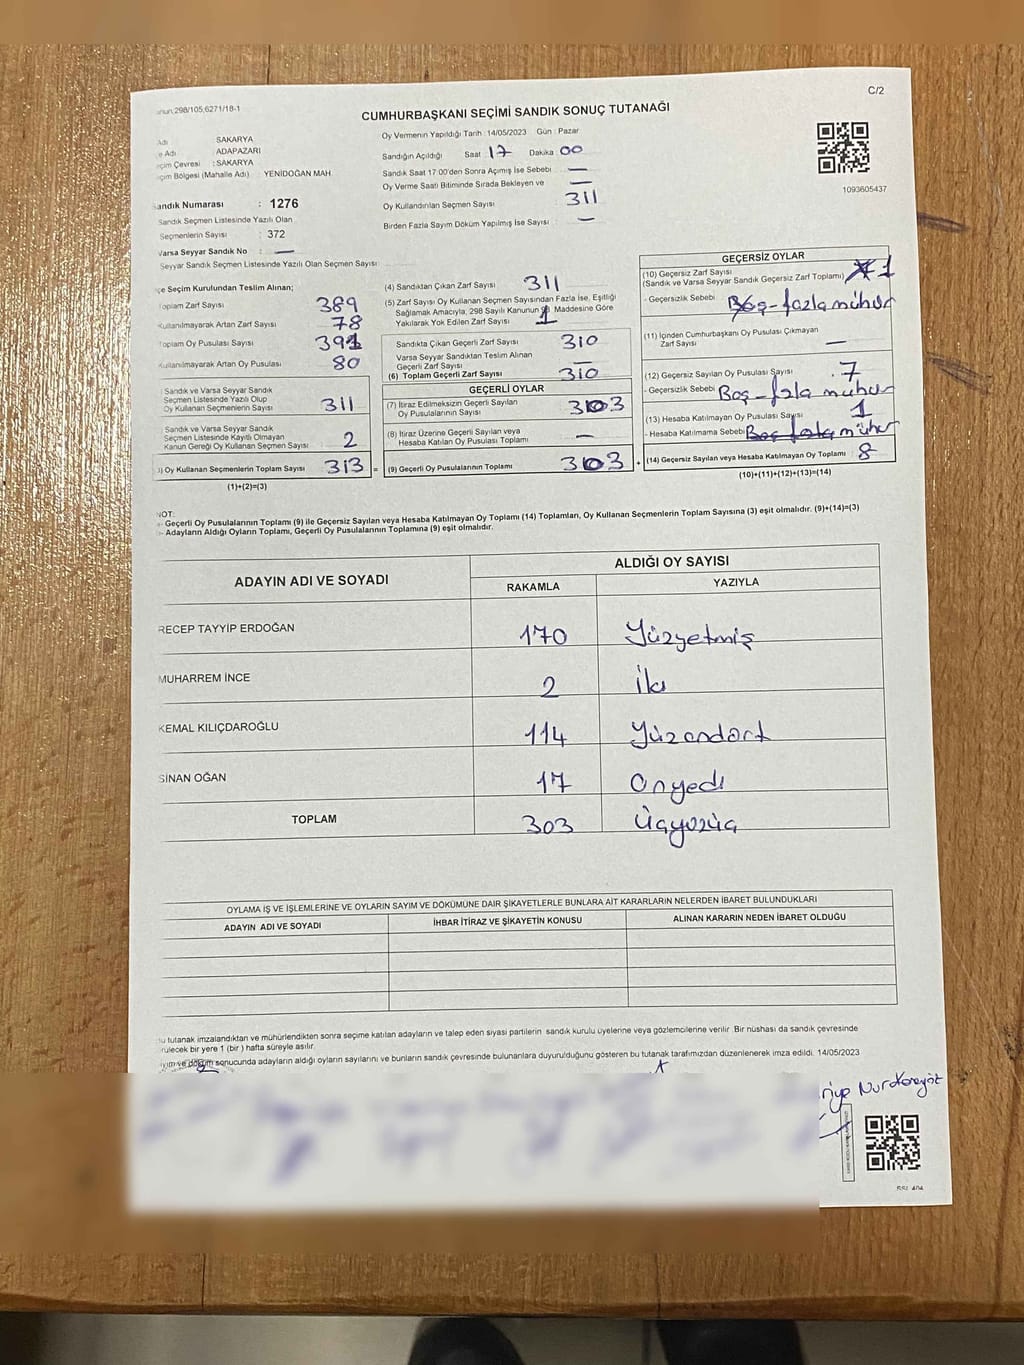 298/105,6271/18-1
C/2
CUMHURBAŞKANI SEÇİMİ SANDIK SONUÇ TUTANAĞI
Adı SAKARYA
Adı ADAPAZARI
Çevresi : SAKARYA
Bölgesi (Mahalle Adı) : YENİDOĞAN MAH.
Sandık Numarası : 1276
Sandık Seçmen Listesinde Yazılı Olan
Seçmenlerin Sayısı : 372
Varsa Seyyar Sandık No : —
Seyyar Sandık Seçmen Listesinde Yazılı Olan Seçmen Sayısı
Oy Vermenin Yapıldığı Tarih : 14/05/2023 Gün : Pazar
Sandığın Açıldığı Saat 17 Dakika 00
Sandık Saat 17:00'den Sonra Açımış İse Sebebi —
Oy Verme Saati Bitiminde Sırada Bekleyen ve —
Oy Kullandırılan Seçmen Sayısı : 311
Birden Fazla Sayım Döküm Yapılmış İse Sayısı : —
1093605437
Seçim Kurulundan Teslim Alınan;
Toplam Zarf Sayısı 389
Kullanılmayarak Artan Zarf Sayısı 78
Toplam Oy Pusulası Sayısı 391
Kullanılmayarak Artan Oy Pusulası 80
Sandık ve Varsa Seyyar Sandık
Seçmen Listesinde Yazılı Olup
Oy Kullanan Seçmenlerin Sayısı 311
Sandık ve Varsa Seyyar Sandık
Seçmen Listesinde Kayıtlı Olmayan
Kanun Gereği Oy Kullanan Seçmen Sayısı 2
Oy Kullanan Seçmenlerin Toplam Sayısı 313 =
(1)+(2)=(3)
(4) Sandıktan Çıkan Zarf Sayısı 311
(5) Zarf Sayısı Oy Kullanan Seçmen Sayısından Fazla İse, Eşitliği
Sağlamak Amacıyla, 298 Sayılı Kanunun Maddesine Göre
Yakılarak Yok Edilen Zarf Sayısı 1
Sandıkta Çıkan Geçerli Zarf Sayısı 310
Varsa Seyyar Sandıktan Teslim Alınan
Geçerli Zarf Sayısı —
(6) Toplam Geçerli Zarf Sayısı 310
GEÇERLİ OYLAR
(7) İtiraz Edilmeksizin Geçerli Sayılan
Oy Pusulalarının Sayısı 303
(8) İtiraz Üzerine Geçerli Sayılan veya
Hesaba Katılan Oy Pusulası Toplamı —
(9) Geçerli Oy Pusulalarının Toplamı 303 +
GEÇERSİZ OYLAR
(10) Geçersiz Zarf Sayısı
(Sandık ve Varsa Seyyar Sandık Geçersiz Zarf Toplamı) 1
- Geçersizlik Sebebi Boş-fazla mühür
(11) İçinden Cumhurbaşkanı Oy Pusulası Çıkmayan
Zarf Sayısı —
(12) Geçersiz Sayılan Oy Pusulası Sayısı 7
- Geçersizlik Sebebi Boş-fzla mühür
(13) Hesaba Katılmayan Oy Pusulası Sayısı 1
- Hesaba Katılmama Sebebi Boş fazla mühür
(14) Geçersiz Sayılan veya Hesaba Katılmayan Oy Toplamı : 8
(10)+(11)+(12)+(13)=(14)
NOT:
- Geçerli Oy Pusulalarının Toplamı (9) ile Geçersiz Sayılan veya Hesaba Katılmayan Oy Toplamı (14) Toplamları, Oy Kullanan Seçmenlerin Toplam Sayısına (3) eşit olmalıdır. (9)+(14)=(3)
- Adayların Aldığı Oyların Toplamı, Geçerli Oy Pusulalarının Toplamına (9) eşit olmalıdır.
ADAYIN ADI VE SOYADI
ALDIĞI OY SAYISI
RAKAMLA YAZIYLA
RECEP TAYYİP ERDOĞAN 170 Yüzyetmiş
MUHARREM İNCE 2 İki
KEMAL KILIÇDAROĞLU 114 Yüzondört
SİNAN OĞAN 17 Onyedi
TOPLAM 303 Üçyüzüç
OYLAMA İŞ VE İŞLEMLERİNE VE OYLARIN SAYIM VE DÖKÜMÜNE DAİR ŞİKAYETLERLE BUNLARA AİT KARARLARIN NELERDEN İBARET BULUNDUKLARI
ADAYIN ADI VE SOYADI İHBAR İTİRAZ VE ŞİKAYETİN KONUSU ALINAN KARARIN NEDEN İBARET OLDUĞU
tutanak imzalandıktan ve mühürlendikten sonra seçime katılan adayların ve talep eden siyasi partilerin sandık kurulu üyelerine veya gözlemcilerine verilir. Bir nüshası da sandık çevresinde
bir yere 1 (bir) hafta süreyle asılır.
ve döküm sonucunda adayların aldığı oyların sayılarını ve bunların sandık çevresinde bulunanlara duyurulduğunu gösteren bu tutanak tarafımızdan düzenlenerek imza edildi. 14/05/2023